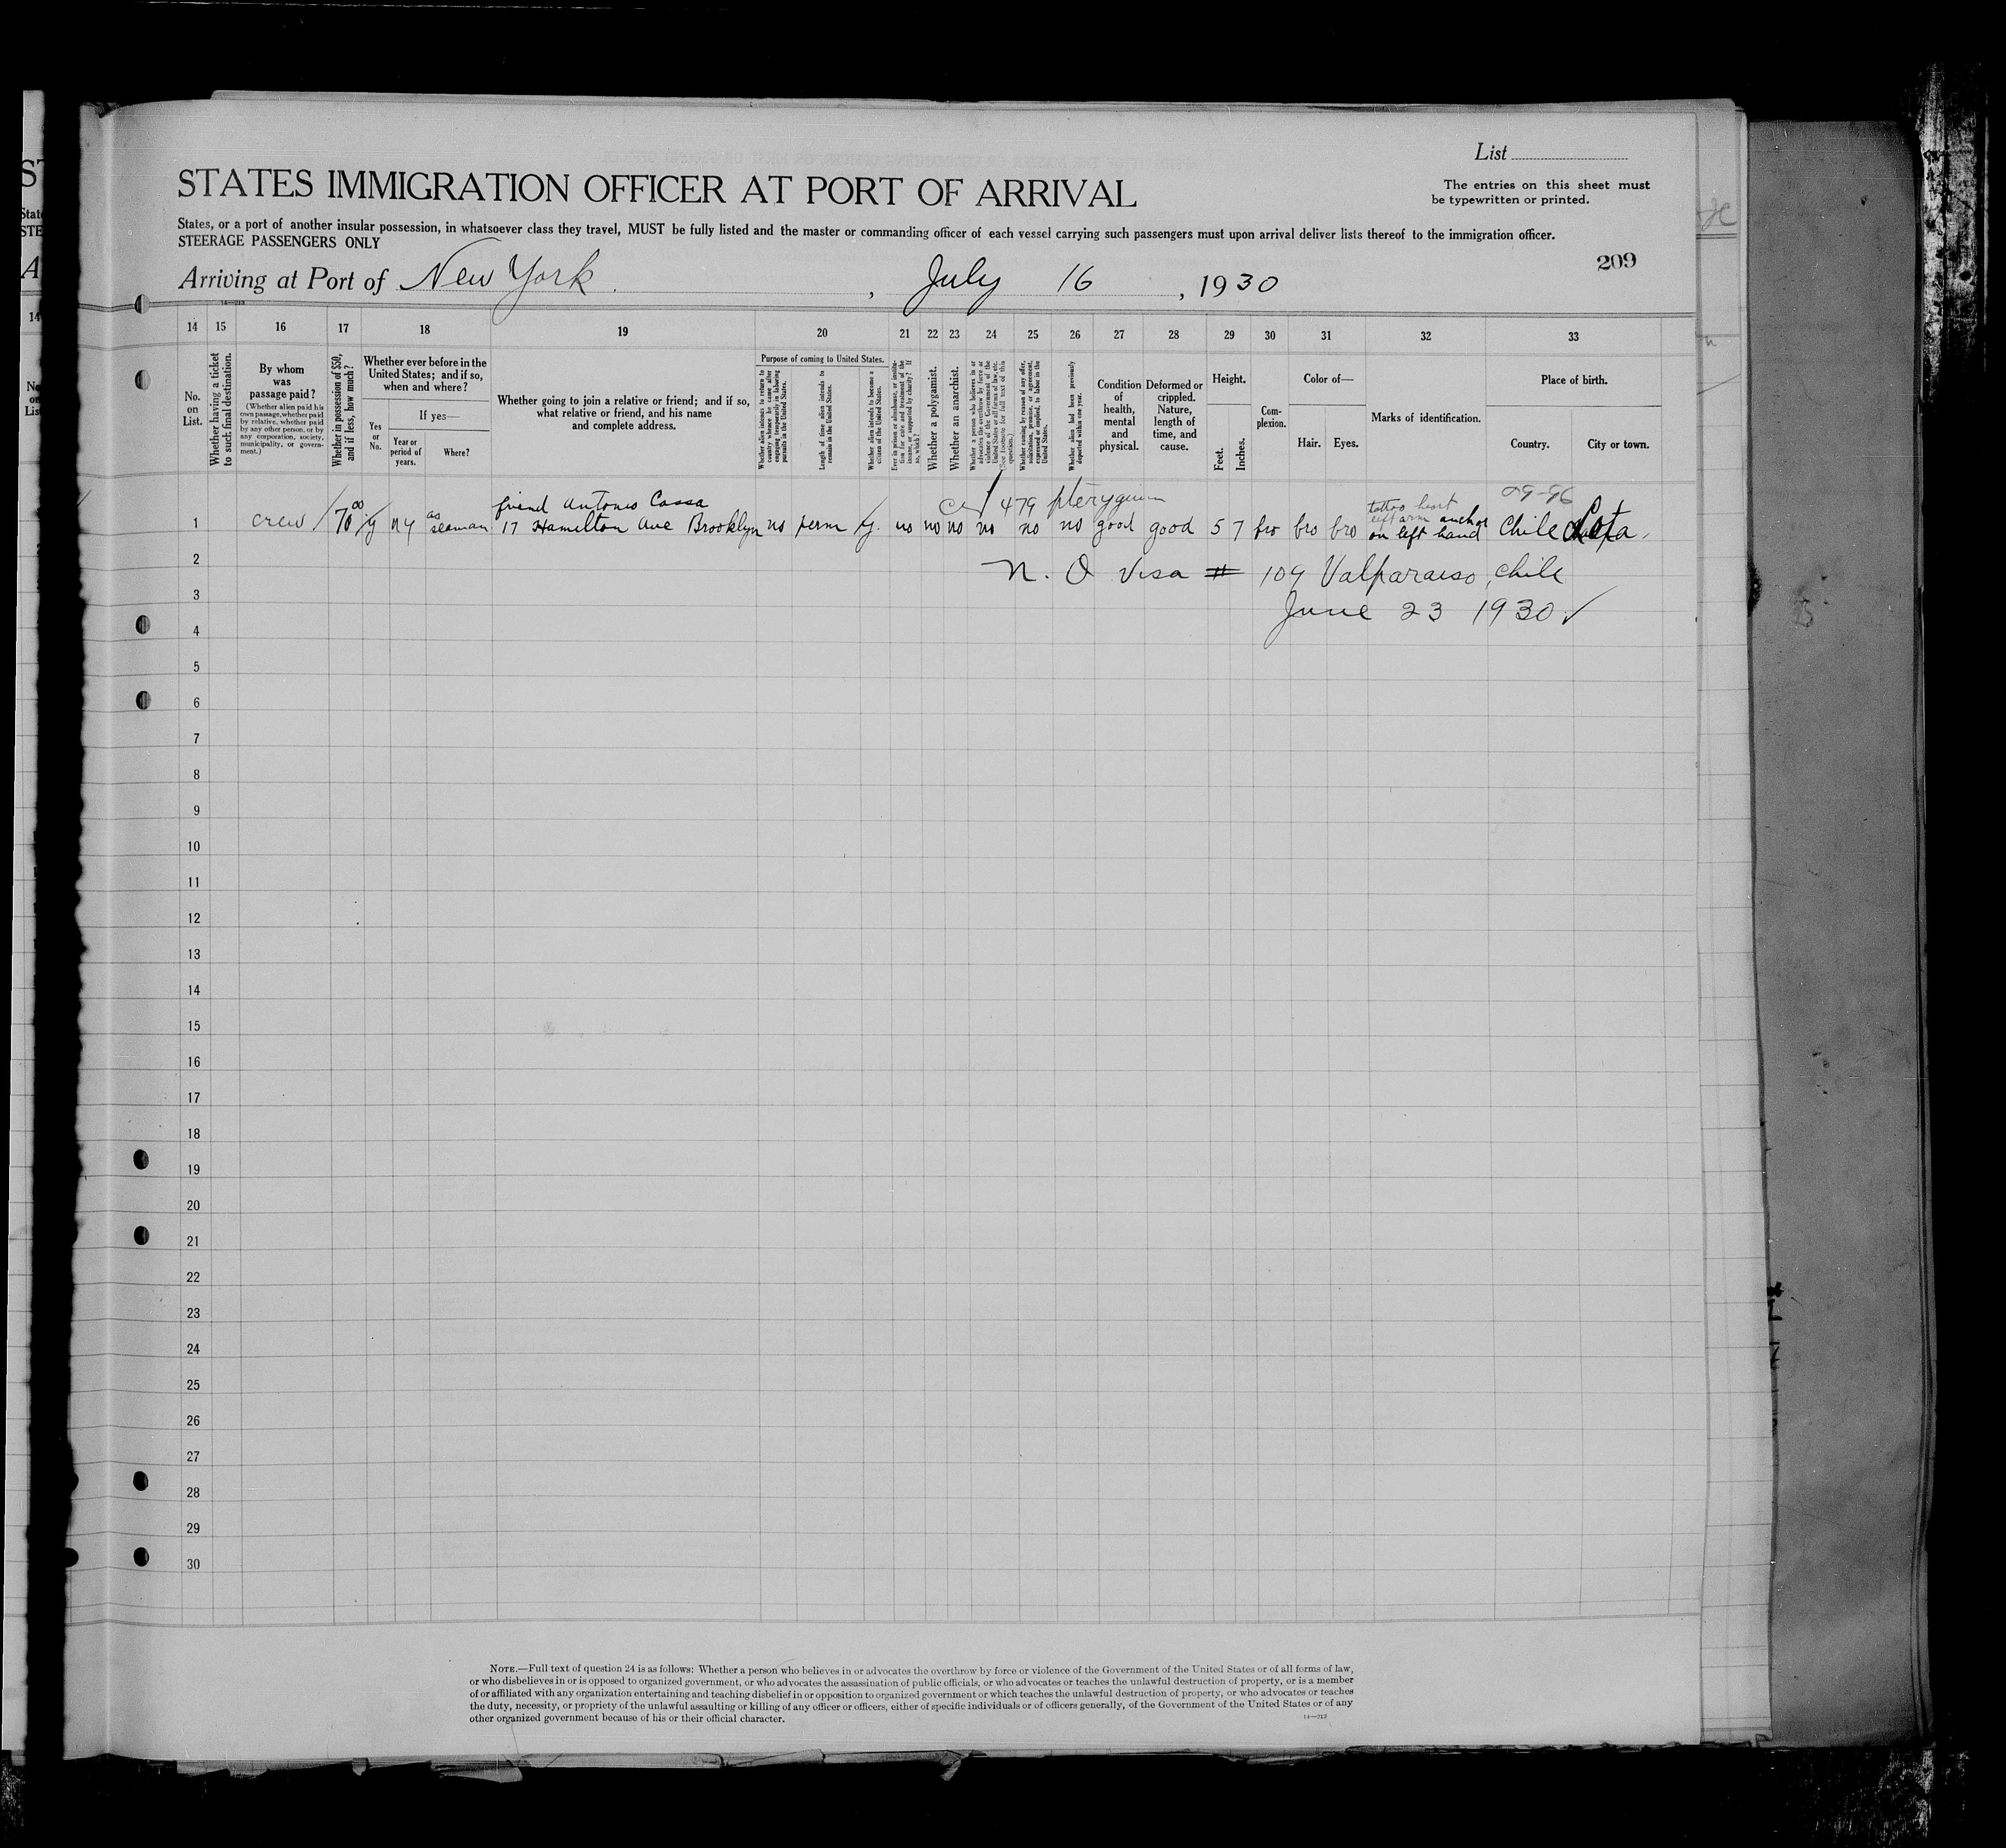 List
STATES IMMIGRATION OFFICER AT PORT OF ARRIVAL
The entries on this sheet must
be typewritten or printed.
States, or a port of another insular possession, in whatsoever class they travel, MUST be fully listed and the master or commanding officer of each vessel carrying such passengers must upon arrival deliver lists thereof to the immigration officer.
STEERAGE PASSENGERS ONLY
209
Arriving at Port of New York, July 16, 1930
14—213
14 15 16 17 18 19 20 21 22 23 24 25 26 27 28 29 30 31 32 33
No. on List.
Whether having a ticket to such final destination.
By whom was passage paid?
(Whether alien paid his own passage, whether paid by relative, whether paid by any other person, or by any corporation, society, municipality, or government.)
Whether in possession of $50, and if less, how much?
Whether ever before in the United States; and if so, when and where?
Yes or No.
If yes—
Year or period of years.
Where?
Whether going to join a relative or friend; and if so, what relative or friend, and his name and complete address.
Purpose of coming to United States.
Whether alien intends to return to country whence he came after engaging temporarily in laboring pursuits in the United States.
Length of time alien intends to remain in the United States.
Whether alien intends to become a citizen of the United States.
Ever in prison or almshouse, or institution for care and treatment of the insane, or supported by charity? If so, which?
Whether a polygamist.
Whether an anarchist.
Whether a person who believes in or advocates the overthrow by force or violence of the Government of the United States or all forms of law, etc. (See footnote for full text of this question.)
Whether coming by reason of any offer, solicitation, promise, or agreement, expressed or implied, to labor in the United States.
Whether alien had been previously deported within one year.
Condition of health, mental and physical.
Deformed or crippled. Nature, length of time, and cause.
Height.
Feet. Inches.
Complexion.
Color of—
Hair. Eyes.
Marks of identification.
Place of birth.
Country. City or town.
479 pterygium
friend Antonio Cassa
tattoo heart
left arm anchor
1 crew 70 00 y ny as seaman 17 Hamilton Ave Brooklyn no perm y. no no no no no no good good 5 7 bro bro bro on left hand Chile Lota.
2 N.Q Visa # 109 Valparaiso, Chile
3 June 23 1930 ✓
4
5
6
7
8
9
10
11
12
13
14
15
16
17
18
19
20
21
22
23
24
25
26
27
28
29
30
NOTE.—Full text of question 24 is as follows: Whether a person who believes in or advocates the overthrow by force or violence of the Government of the United States or of all forms of law,
or who disbelieves in or is opposed to organized government, or who advocates the assassination of public officials, or who advocates or teaches the unlawful destruction of property, or is a member
of or affiliated with any organization entertaining and teaching disbelief in or opposition to organized government or which teaches the unlawful destruction of property, or who advocates or teaches
the duty, necessity, or propriety of the unlawful assaulting or killing of any officer or officers, either of specific individuals or of officers generally, of the Government of the United States or of any
other organized government because of his or their official character.
14—213